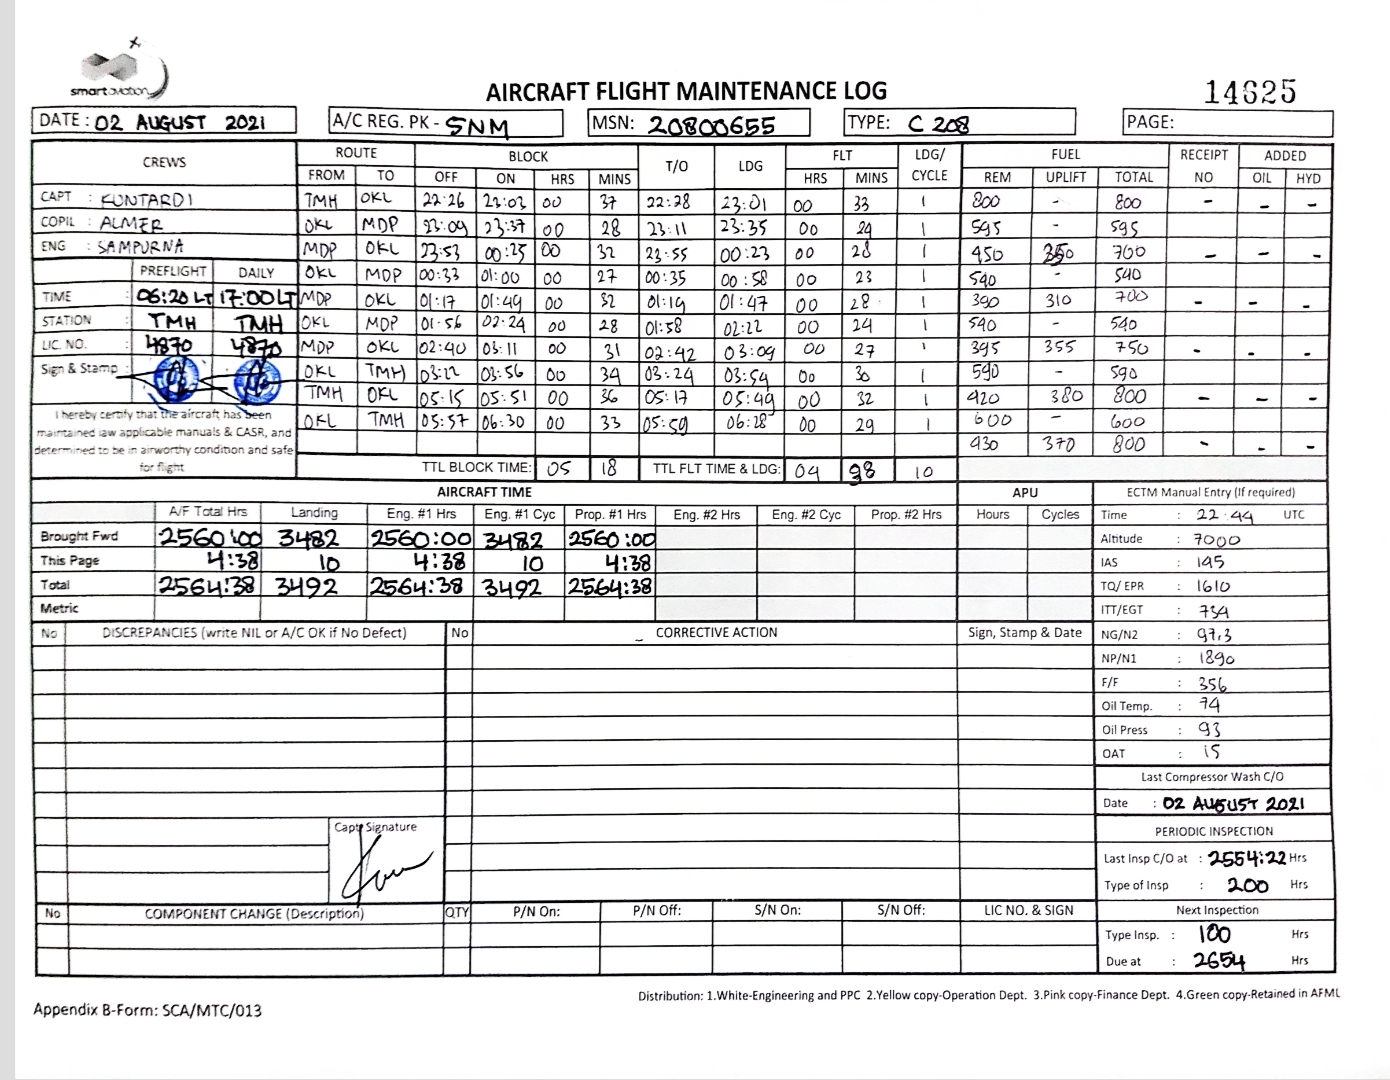 smart aviation
AIRCRAFT FLIGHT MAINTENANCE LOG
14625
DATE : 02 AUGUST 2021 A/C REG. PK - SNM MSN: 20800655 TYPE: C 208 PAGE:
CREWS ROUTE BLOCK T/O LDG FLT LDG/ CYCLE FUEL RECEIPT NO ADDED
FROM TO OFF ON HRS MINS HRS MINS REM UPLIFT TOTAL OIL HYD
CAPT : KUNTARDI TMH OKL 22:26 23:03 00 37 22:28 23:01 00 33 1 800 - 800 - - -
COPIL : ALMER OKL MDP 23:09 23:37 00 28 23:11 23:35 00 24 1 595 - 595
ENG : SAMPURNA MDP OKL 23:53 00:25 00 32 23:55 00:23 00 28 1 450 350 700 - - -
PREFLIGHT DAILY OKL MDP 00:33 01:00 00 27 00:35 00:58 00 23 1 540 540
TIME : 06:20 LT 17:00 LT MDP OKL 01:17 01:49 00 32 01:19 01:47 00 28 1 390 310 700 - - -
STATION : TMH TMH OKL MDP 01:56 02:24 00 28 01:58 02:22 00 24 1 540 - 540
LIC. NO. : 4870 4870 MDP OKL 02:40 03:11 00 31 02:42 03:09 00 27 1 395 355 750 - - -
Sign & Stamp : OKL TMH 03:22 03:56 00 34 03:24 03:54 00 30 1 590 - 590
TMH OKL 05:15 05:51 00 36 05:17 05:49 00 32 1 420 380 800 - - -
I hereby certify that the aircraft has been OKL TMH 05:57 06:30 00 33 05:59 06:28 00 29 1 600 600
maintained iaw applicable manuals & CASR, and
determined to be in airworthy condition and safe 430 370 800 - - -
for flight TTL BLOCK TIME: 05 18 TTL FLT TIME & LDG: 04 38 10
AIRCRAFT TIME APU ECTM Manual Entry (If required)
A/F Total Hrs Landing Eng. #1 Hrs Eng. #1 Cyc Prop. #1 Hrs Eng. #2 Hrs Eng. #2 Cyc Prop. #2 Hrs Hours Cycles Time : 22:44 UTC
Brought Fwd 2560:00 3482 2560:00 3482 2560:00 Altitude : 7000
This Page 4:38 10 4:38 10 4:38 IAS : 145
Total 2564:38 3492 2564:38 3492 2564:38 TQ/ EPR : 1610
Metric ITT/EGT : 734
No DISCREPANCIES (write NIL or A/C OK if No Defect) No CORRECTIVE ACTION Sign, Stamp & Date NG/N2 : 97,3
NP/N1 : 1890
F/F : 356
Oil Temp. : 74
Oil Press : 93
OAT : 15
Last Compressor Wash C/O
Date : 02 AUGUST 2021
Capt Signature PERIODIC INSPECTION
Last Insp C/O at : 2554:22 Hrs
Type of Insp : 200 Hrs
No COMPONENT CHANGE (Description) QTY P/N On: P/N Off: S/N On: S/N Off: LIC NO. & SIGN Next Inspection
Type Insp. : 100 Hrs
Due at : 2654 Hrs
Distribution: 1.White-Engineering and PPC 2.Yellow copy-Operation Dept. 3.Pink copy-Finance Dept. 4.Green copy-Retained in AFML
Appendix B-Form: SCA/MTC/013